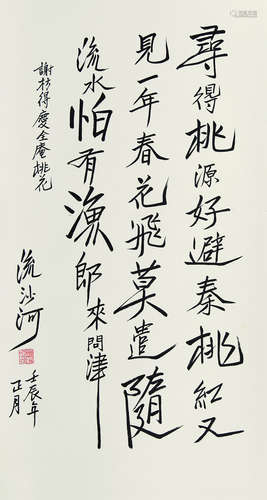 尋得桃源好避秦桃紅又
見一年春花飛莫遣隨
流水怕有漁郎來問津
謝枋得慶全庵桃花
流沙河
壬辰年
正月